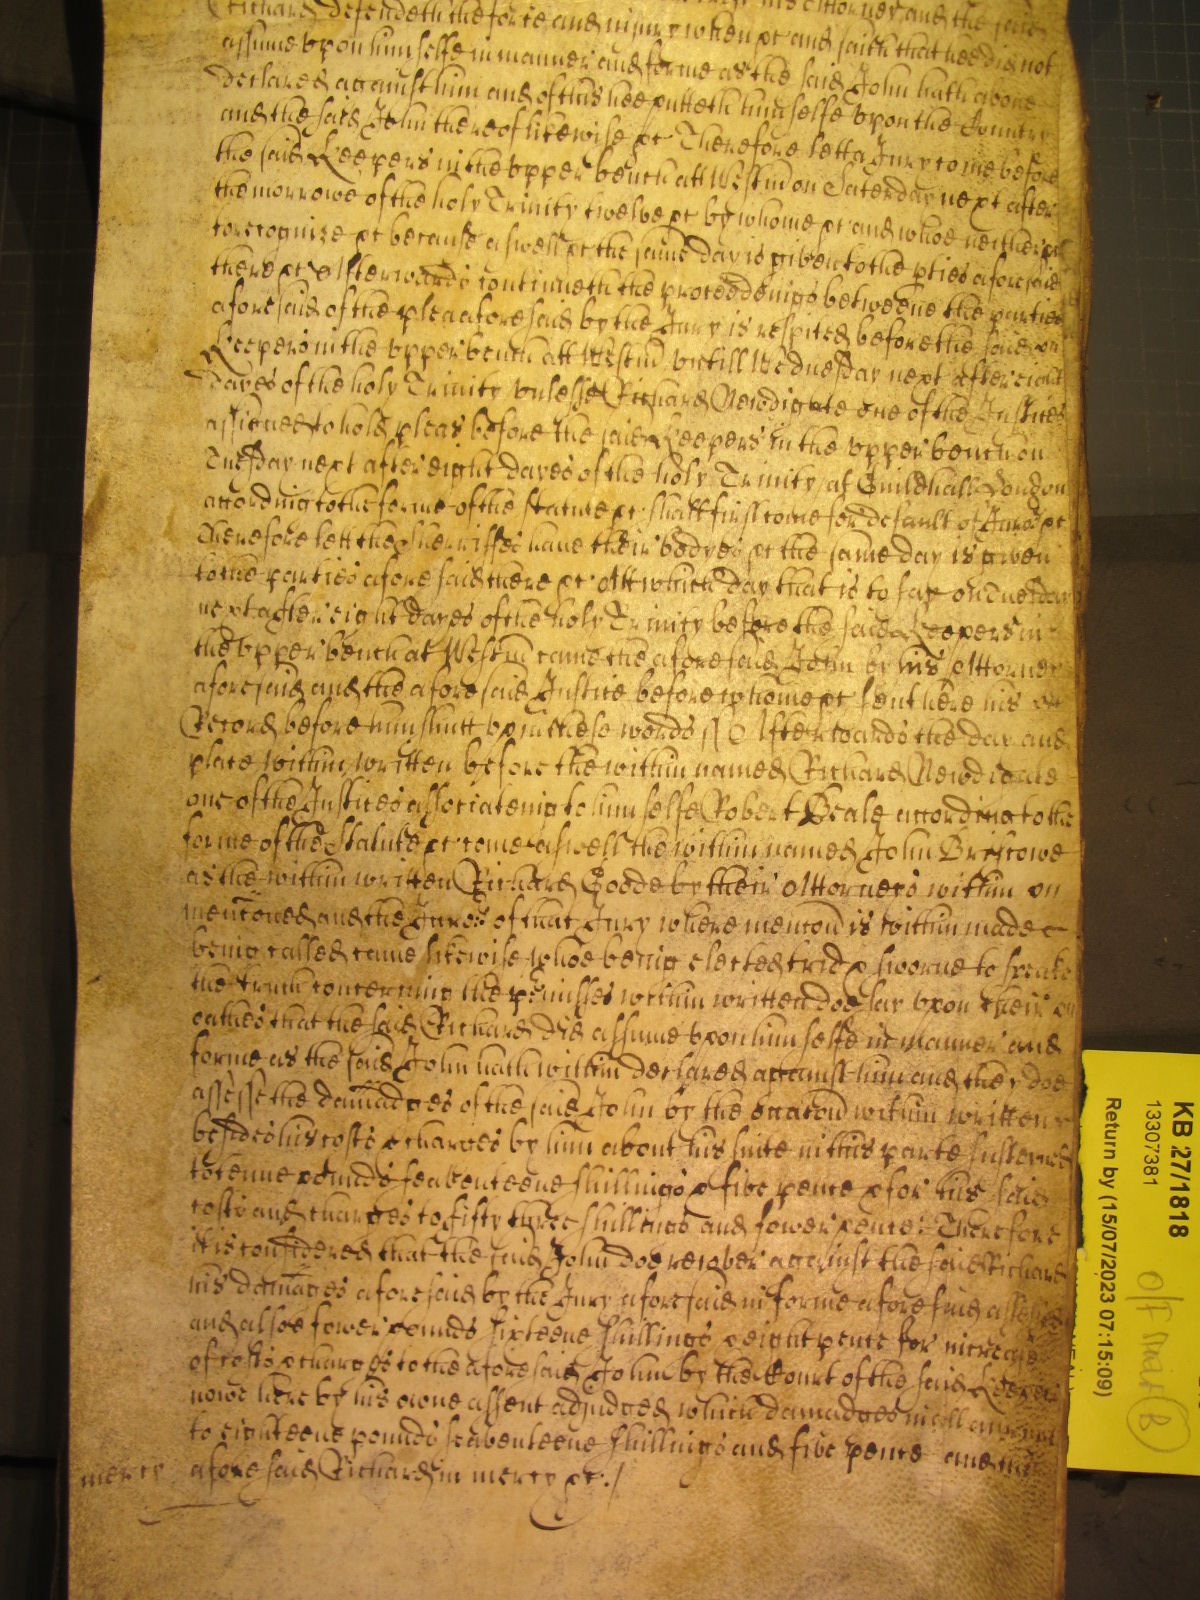 his Attorney and the said
Richard defendeth the force and iniury when &c and saith that hee did not
assume vpon him selfe in manner and forme as the said John hath aboue
declared against him and of this hee putteth himselfe vpon the Country
and the said John thereof likewise &c Therefore lett a Jury come before
the said Keepers in the vpper bench att Westm̄ on Saterday next after
the morrowe of the holy Trinity twelve &c by whome &c and whoe neither &c
to recognize &c because aswell &c the same day is given to the pties aforesaid
there &c Afterwards continueth the proceedings betweene the parties
aforesaid of the plea aforesaid by the Jury is respited before the said
Keepers in the vpper bench att Westm̄ vntill Wednesday next after eight
dayes of the holy Trinity vnlesse Richard Newdigate one of the Justices
assigned to hold pleas before the said Keepers in the vpper bench on
Tuesday next after eight dayes of the holy Trinity at Guildhall London
according to the forme of the statute &c shall first come for default of Juro &c
Therefore lett the Sherriffes haue their bodyes &c the same day is given
to the parties aforesaid there &c Att which day that is to say on Tuesday
next after eight dayes of the holy Trinity before the said Keepers in
the vpper bench at Westm̄ came the aforesaid John by his Attorney
aforesaid and the aforesaid Justice before whome &c sent here his
Record before him shutt vp in these words // Afterwards the day and
place within written before the within named Richard Newdigate
one of the Justices associateing to him selfe Robert Beale according to the
forme of the Statute &c come aswell the within named John Bristowe
as the within written Richard Goode by their Attorneys within
menc̄oned and the Juro: of that Jury where menc̄on is within made
being called came likewise whoe being elected tried & sworne to speake
the truth concerning the p̄misses within written doe say vpon their
oathes that the said Richard did assume vpon him selfe in manner and
forme as the said John hath within declared against him and they doe
assesse the damadges of the said John by the occac̄on within written
besides his costs & charges by him about his suite in this parte susteyned
to tenne pounds seaventeene shillings & five pence & for his said
costs and charges to fifty three shillings and fower pence: Therefore
it is considered that the said John doe recover against the said Richard
his damages aforesaid by the Jury aforesaid in forme aforesaid assessed
and alsoe fower pounds sixteene shillings & eight pence for increase
of costs & charges to the aforesaid John by the Court of the said Keepers
nowe here by his owne assent adjudged which damadges in all amount
to eighteene pounds seaventeene shillings and five pence and the
mercy aforesaid Richard in mercy &c./
KB 27/1818
13307381
Return by (15/07/2023 07:15:09)